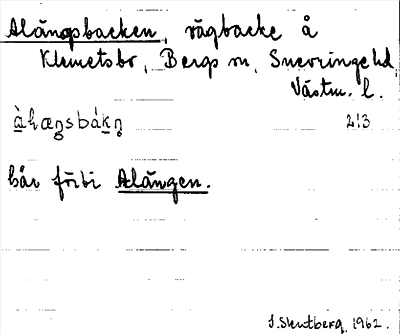 Alängsbacken, vägbacke å
Klemetsbo, Bergs sn, Snevringe hd,
Västm. l.
àhæŋsbákn̥ 213
bär förbi Alängen.
1962.